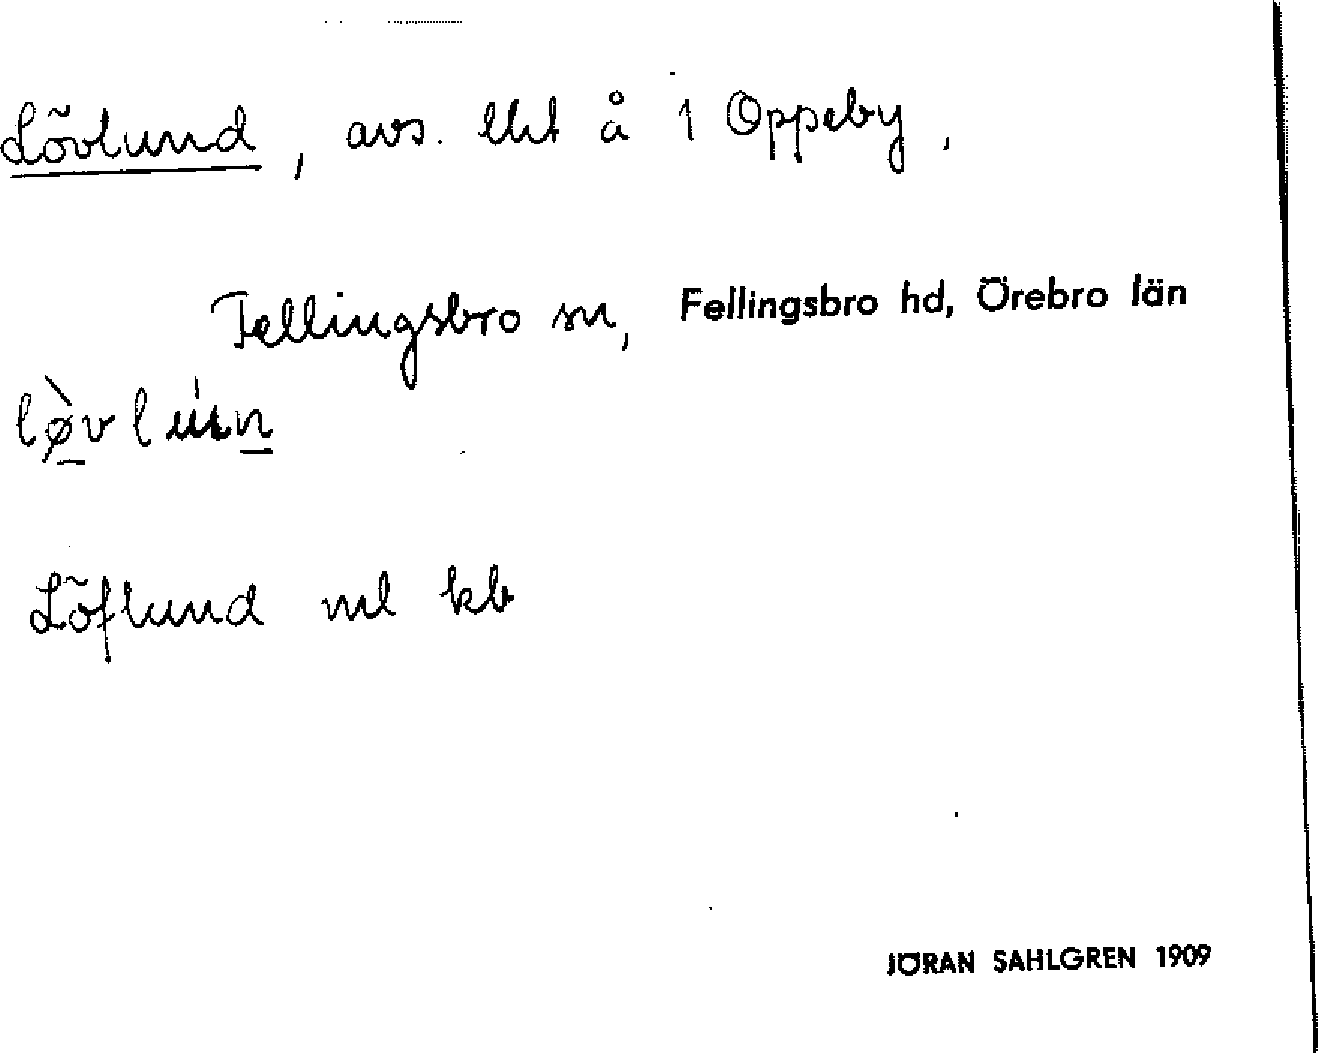 Lövlund, avs. lht å 1 Oppeby,
Fellingsbro sn, Fellingsbro hd, Örebro län
Löflund ml kb
JÖRAN SAHLGREN 1909